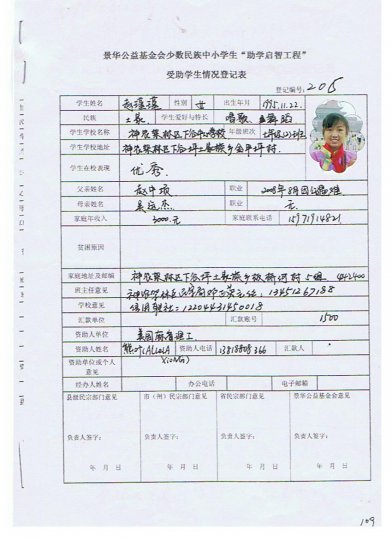 景华公益基金会少数民族中小学生“助学启智工程”
受助学生情况登记表
登记编号: 205
学生姓名 赵 性别 女 出生年月 1995.11.22.
民族 土家 学生爱好与特长 唱歌 舞蹈
学生学校名称 神农架林区下谷中心学校 年级班次
学生学校地址 神农架林区下谷坪土家族乡金甲坪村
学生在校表现 优秀.
父亲姓名 赵中 职业 2008年8月因
母亲姓名 吴 职业 无
家庭年收入 3000.元 家庭联系电话 15971914821
贫困原因
家庭地址及邮编 神农架林区下谷坪土家族乡板桥河村 5组 442400
班主任意见 13451267188
学校意见 信用联社: 12204431450018
汇款单位 汇款账号 1500
资助人单位 美国麻省理工
资助人姓名 熊 (ALICIA XIONG) 资助人电话 13818808366 汇款人
资助单位或个人意见
经办人姓名 办公电话 电子邮箱
县级民宗部门意见 市（州）民宗部门意见 省民宗部门意见 景华公益基金会意见
负责人签字： 负责人签字： 负责人签字： 负责人签字：
年 月 日 年 月 日 年 月 日 年 月 日
109